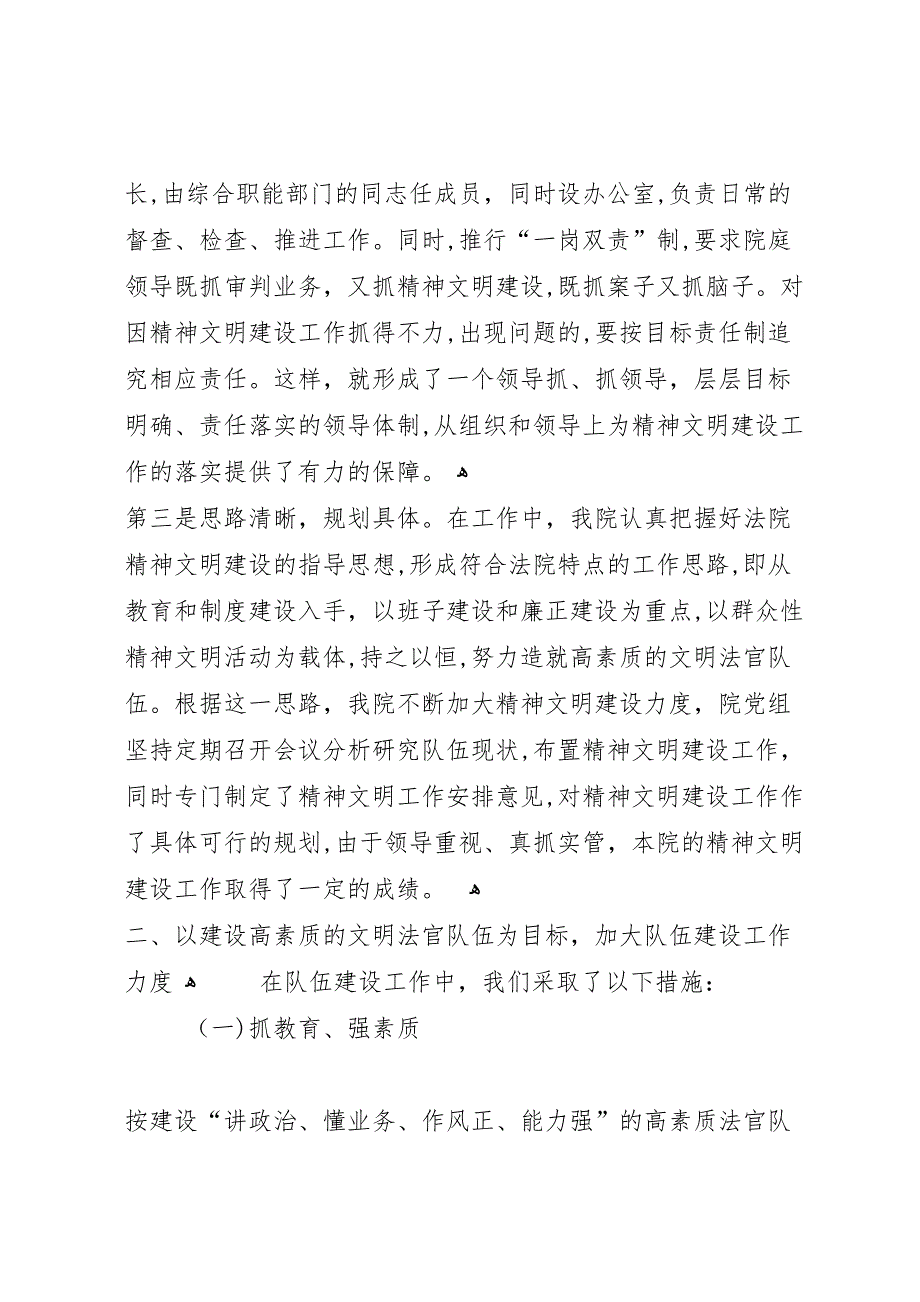 长,由综合职能部门的同志任成员，同时设办公室,负责日常的
督查、检查、推进工作。同时,推行“一岗双责”制,要求院庭
领导既抓审判业务，又抓精神文明建设,既抓案子又抓脑子。对
因精神文明建设工作抓得不力,出现问题的,要按目标责任制追
究相应责任。这样，就形成了一个领导抓、抓领导，层层目标
明确、责任落实的领导体制,从组织和领导上为精神文明建设工
作的落实提供了有力的保障。 ﻫ
第三是思路清晰，规划具体。在工作中，我院认真把握好法院
精神文明建设的指导思想,形成符合法院特点的工作思路,即从
教育和制度建设入手，以班子建设和廉正建设为重点,以群众性
精神文明活动为载体,持之以恒,努力造就高素质的文明法官队
伍。根据这一思路，我院不断加大精神文明建设力度，院党组
坚持定期召开会议分析研究队伍现状,布置精神文明建设工作，
同时专门制定了精神文明工作安排意见,对精神文明建设工作作
了具体可行的规划,由于领导重视、真抓实管，本院的精神文明
建设工作取得了一定的成绩。 ﻫ
二、以建设高素质的文明法官队伍为目标，加大队伍建设工作
力度 ﻫ 在队伍建设工作中，我们采取了以下措施：
（一)抓教育、强素质
按建设“讲政治、懂业务、作风正、能力强”的高素质法官队